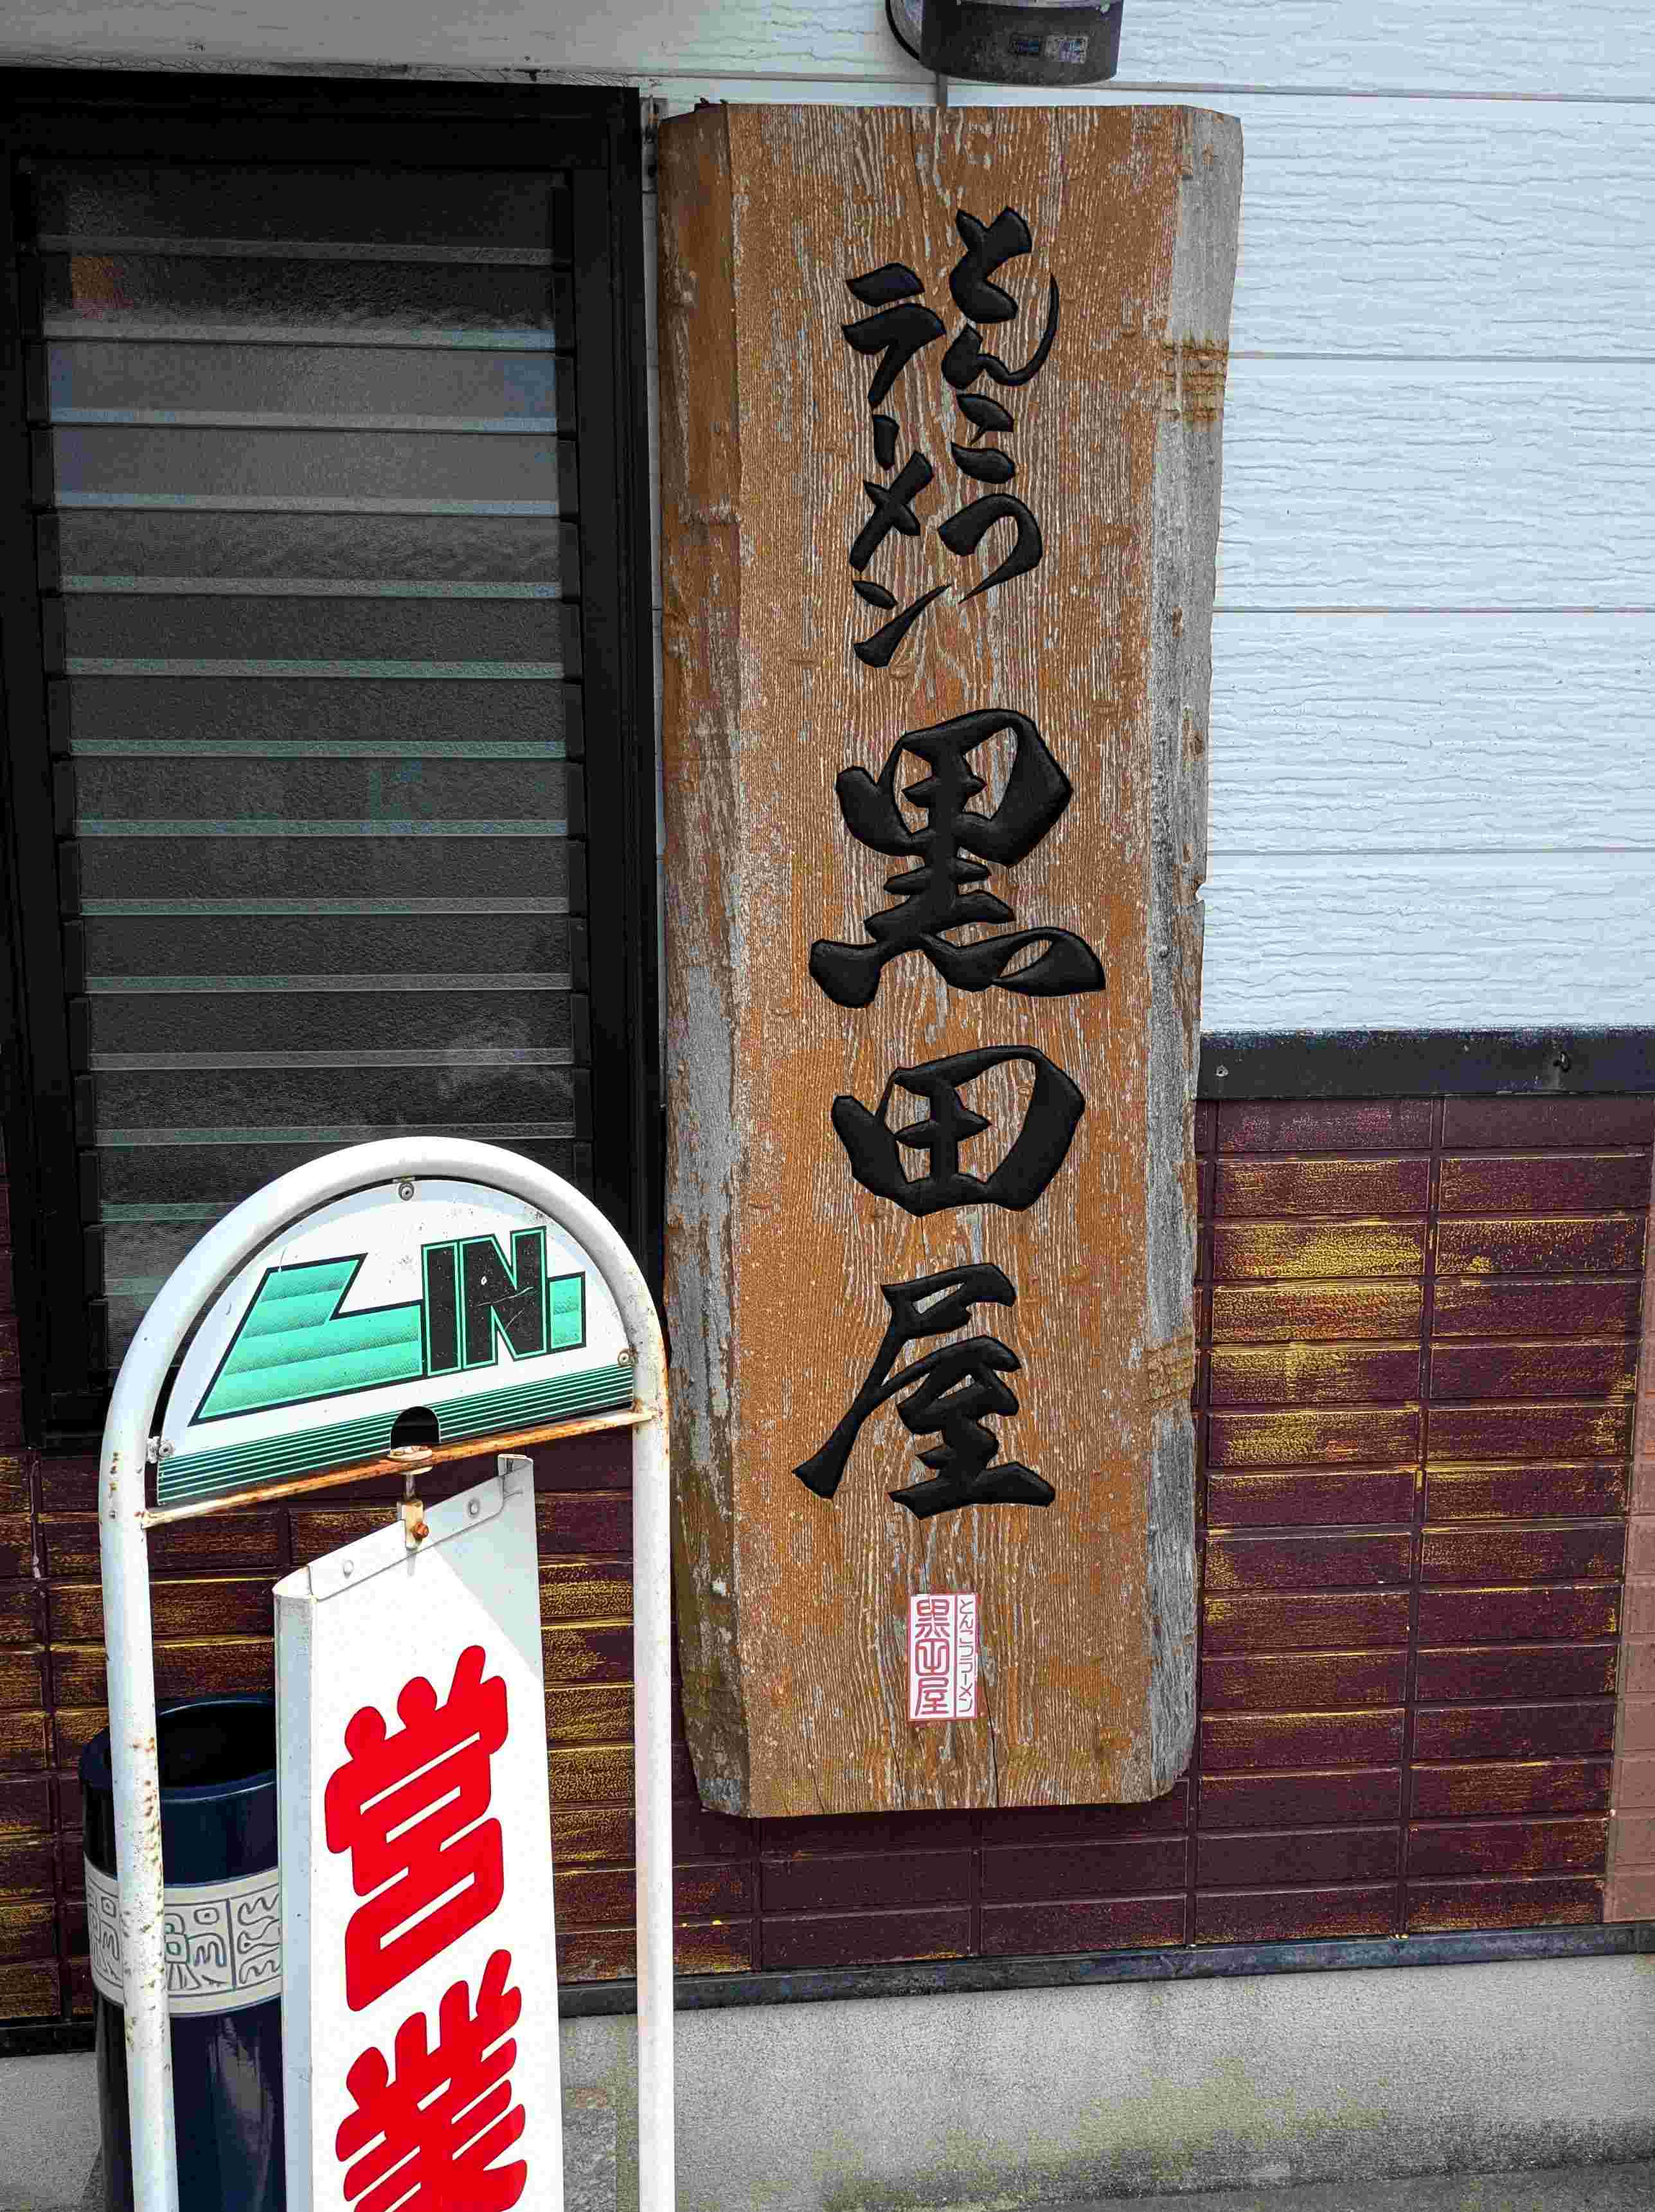 とんこつ
ラーメン
黒田屋
とんこつラーメン
黒田屋
IN.
営業